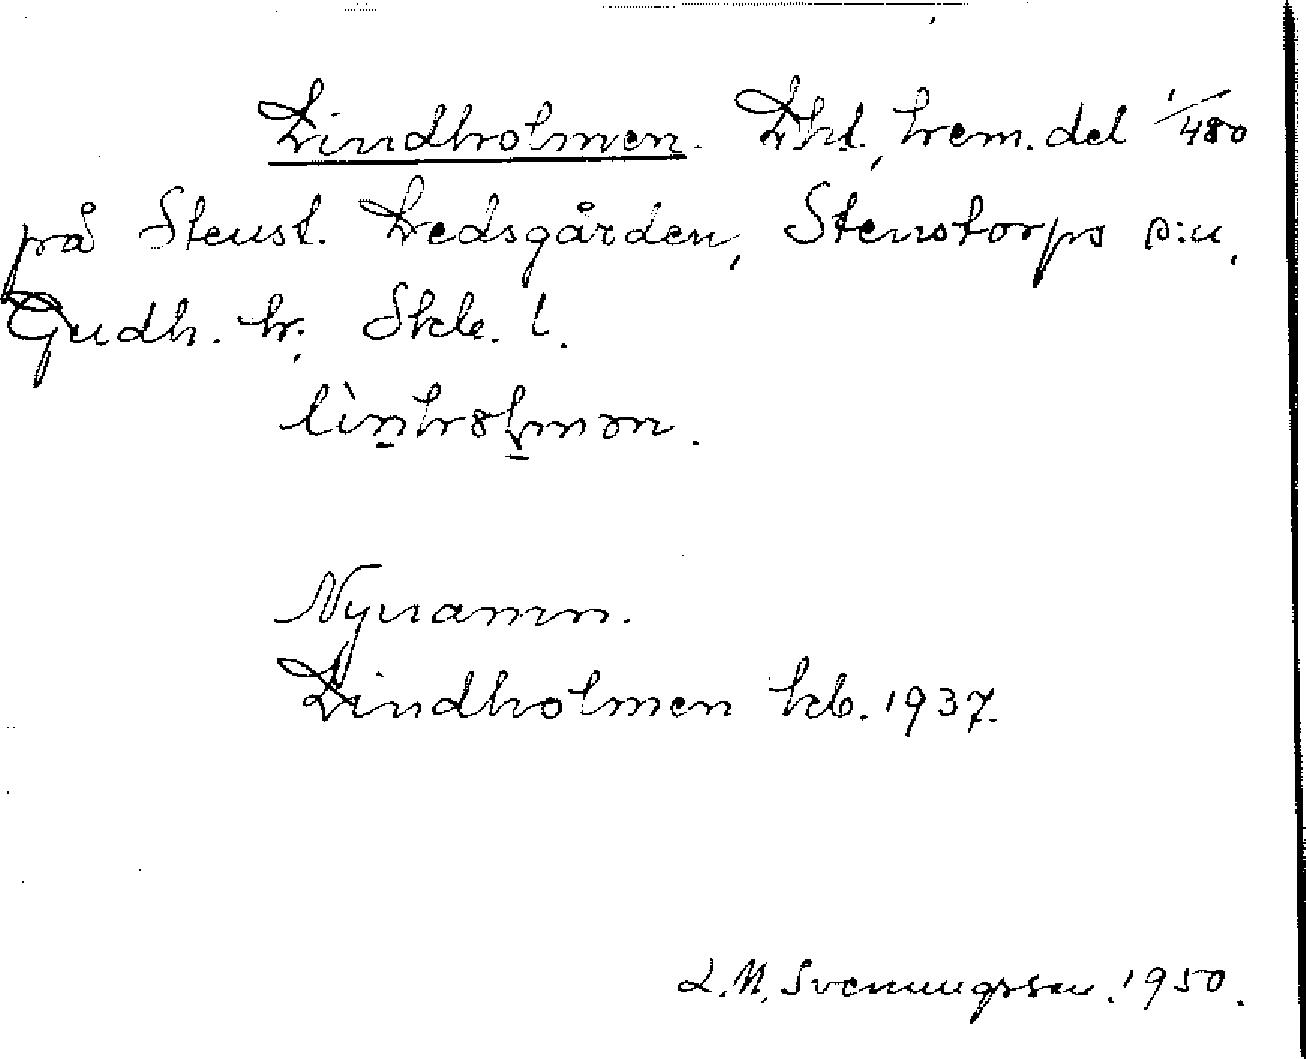 Lindholmen. Lht, hem.del 1/480
på Stenst. Ledsgården, Stenstorps s:n,
Gudh. hr. Skb. l.
lìnholmən.
Nynamn.
Lindholmen hcb. 1937.
L.M. Svenungsson. 1950.